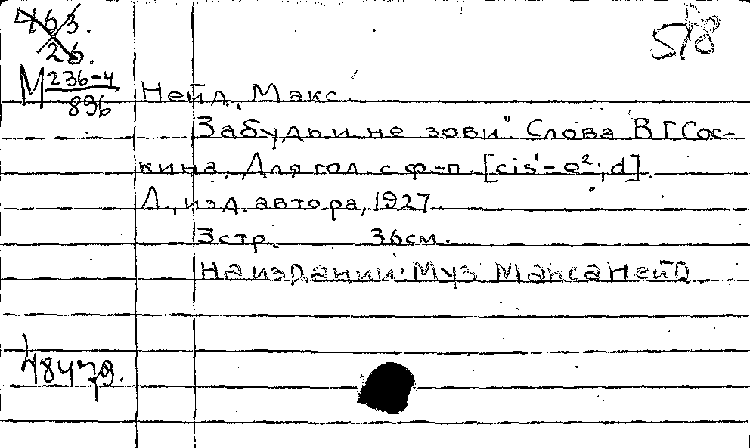 463.
26.
М 236-4
836
5/8
Нейд, Макс.
Забудь и не зови". Слова В Г Сос-
кина. Для гол. с ф-п. [cis'-e²; d].
Л., изд. автора, 1927.
3 стр. 36 см.
На издании: Муз Макса Нейд.